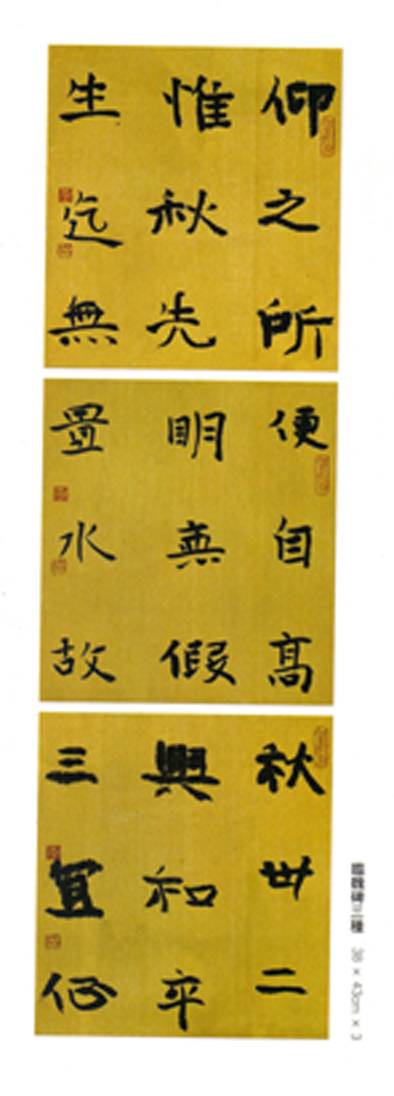 仰之所
惟秋先
生迄無
便自高
明無假
置水故
秋卌二
興和平
三宜何
臨魏碑三種 38×43cm×3